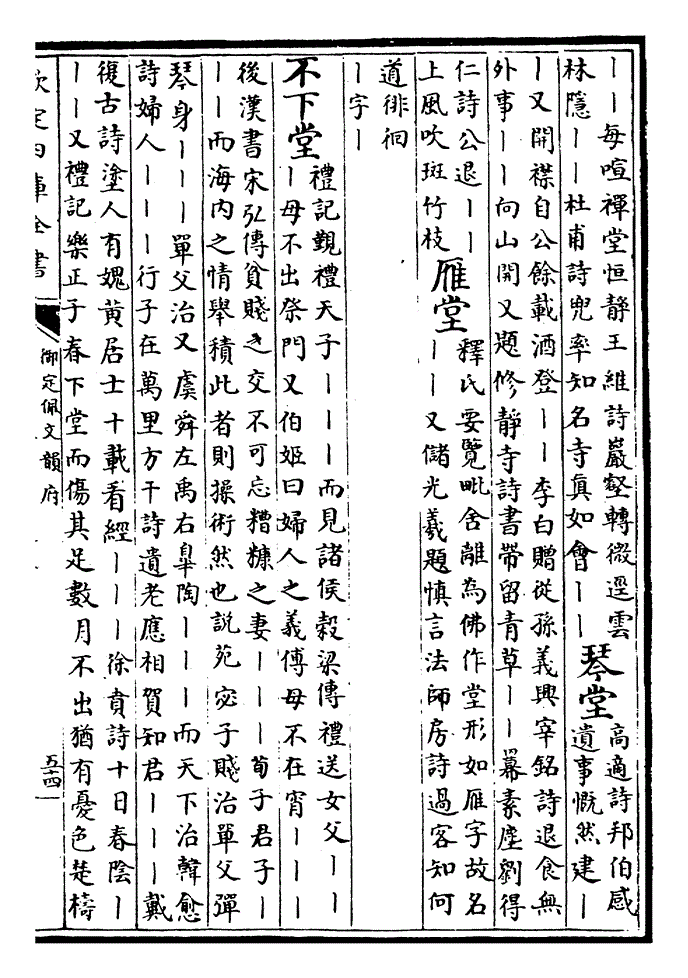 丨丨每喧禪堂恒靜王維詩巖壑轉微逕雲
林隱丨丨杜甫詩兜率知名寺真如會丨丨
琴堂
高適詩邦伯感
遺事慨然建丨
丨又開襟自公餘載酒登丨丨李白贈從孫義興宰銘詩退食無
外事丨丨向山開又題修靜寺詩書帶留青草丨丨冪素塵劉得
仁詩公退丨丨
上風吹斑竹枝
雁堂
釋氏要覽毗舍離為佛作堂形如雁字故名
丨丨又儲光羲題慎言法師房詩過客知何
道徘徊
丨字丨
不下堂
禮記覲禮天子丨丨丨而見諸侯穀梁傳禮送女父丨丨
丨母不出祭門又伯姬曰婦人之義傅母不在宵丨丨丨
後漢書宋弘傳貧賤之交不可忘糟糠之妻丨丨丨荀子君子丨
丨丨而海内之情舉積此者則操術然也説苑宓子賤治單父彈
琴身丨丨丨單父治又虞舜左禹右臯陶丨丨丨而天下治韓愈
詩婦人丨丨丨行子在萬里方干詩遺老應相賀知君丨丨丨戴
復古詩塗人有媿黄居士十載看經丨丨丨徐賁詩十日春陰丨
丨丨又禮記樂正子春下堂而傷其足數月不出猶有憂色楚檮
欽定四庫全書
御定佩文韻府
五十四